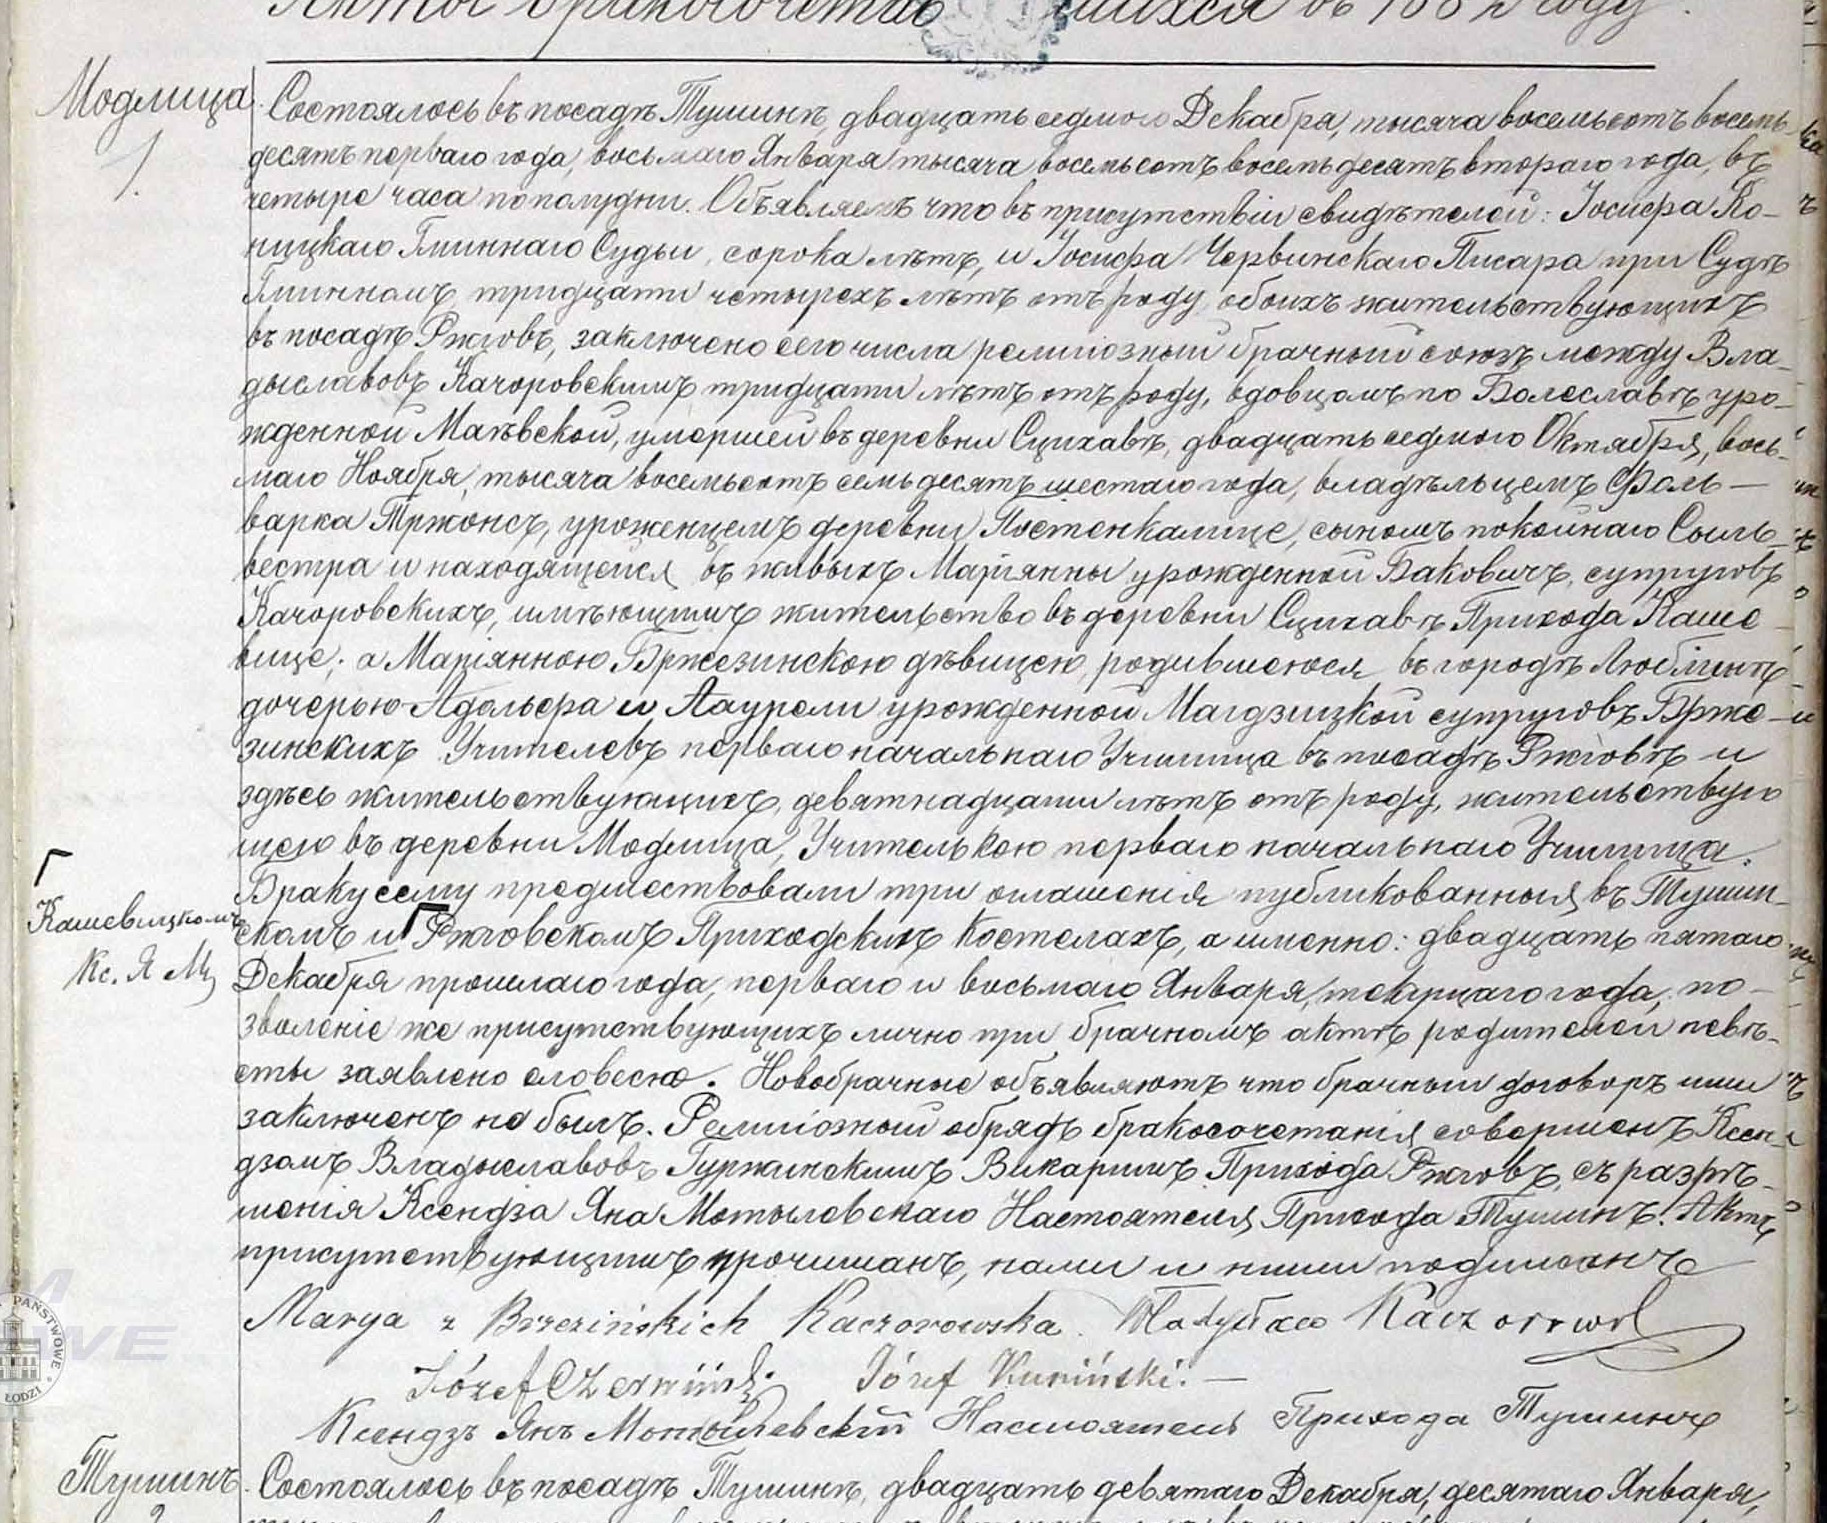 Акты бракосочетаніе шихся въ 1882 году.
Модлица
1.
Состоялось въ посадѣ Тушинѣ, двадцать седмого Декабря, тысяча восемьсотъ восемь-
десятъ перваго года, восьмаго Января тысяча восемьсотъ восемьдесятъ втораго года, въ
четыре часа пополудни. Объявляемъ что въ присутствіи свидѣтелей: Іосифа Ко-
ницкаго Гминнаго Судьи, сорока лѣтъ, и Іосифа Червинскаго Писара при Судѣ
Гминномъ, тридцати четырехъ лѣтъ отъ роду, обоихъ жительствующихъ
въ посадѣ Ржговъ, заключено сего числа религіозный брачный союзъ между Вла-
дыславовъ Качоровскимъ тридцати лѣтъ отъ роду, вдовцомъ по Болеславѣ уро-
жденной Маѣвской, умершей въ деревни Сцихавѣ, двадцать седмого Октября, вось-
маго Ноября, тысяча восемьсотъ семьдесятъ шестаго года, владѣльцемъ Фоль-
варка Тржонсъ, уроженцемъ деревни Постенкалице, сыномъ покойнаго Сыль-
вестра и находящейся въ живыхъ Маріянны урожденной Баковичъ, супруговъ
Качоровскихъ, имѣющимъ жительство въ деревни Сцихавѣ Прихода Каше-
вице; а Маріянною Бржезинскою дѣвицею, родившеюся въ городѣ Люблинѣ,
дочерью Адольфа и Лаурели урожденной Магдзицкой супруговъ Бржо-
зинскихъ Учителевъ перваго начальнаго Училища въ посадѣ Ржговѣ и
здѣсь жительствующихъ, девятнадцати лѣтъ отъ роду, жительствую
щею въ деревни Модлица, Учителькою перваго начальнаго Училища.
Браку сему предшествовали три оглашенія публикованныя въ Тушин-
Кашевицкомъ
Кс. Я М
скомъ и Ржговскомъ Приходскихъ Костелахъ, а именно: двадцать пятаго
Декабря прошлаго года, перваго и восьмаго Января, текущаго года, по-
зволеніе же присутствующихъ лично при брачномъ актѣ родителей невѣ-
сты заявлено словесно. Новобрачные объявляютъ что брачный договоръ ими
заключенъ не былъ. Религіозный обрядъ бракосочетанія совершенъ Ксен-
дзомъ Владыславовъ Гуржинскимъ Викаримъ Прихода Ржговъ, съ разрѣ-
шенія Ксендза Яна Мотылевскаго Настоятеля Прихода Тушинъ. Актъ
присутствующимъ прочитанъ, нами и ними подписанъ
Marya z Brzezińskich Kaczorowska. Władysław Kaczorowski
Józef Czerwiński. Józef Kuniński. —
Ксендзъ Янъ Мотылевскій Настоятель Прихода Тушинъ
Тушинъ.
2
Состоялось въ посадѣ Тушинѣ, двадцать девятаго Декабря, десятаго Января,
PAŃSTWOWE
ŁODZI